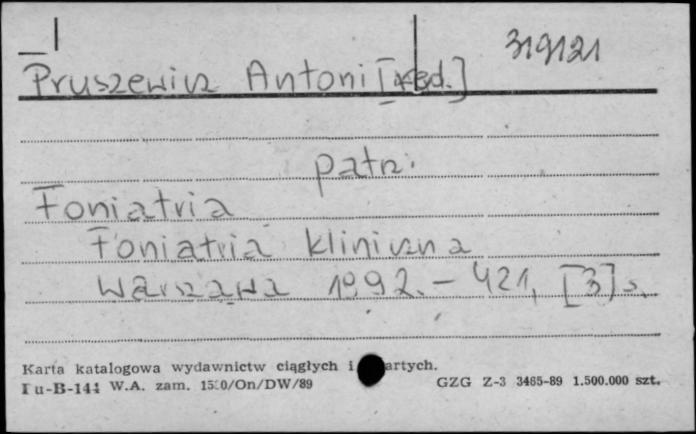 319121
Pruszewicz Antoni [red.]
patrz:
Foniatria
Foniatria kliniczna
Warszawa 1992. – 421, [3] s.
Karta katalogowa wydawnictw ciągłych i artych.
Pu-B-144 W.A. zam. 1530/On/DW/89 GZG Z-3 3465-89 1.500.000 szt.